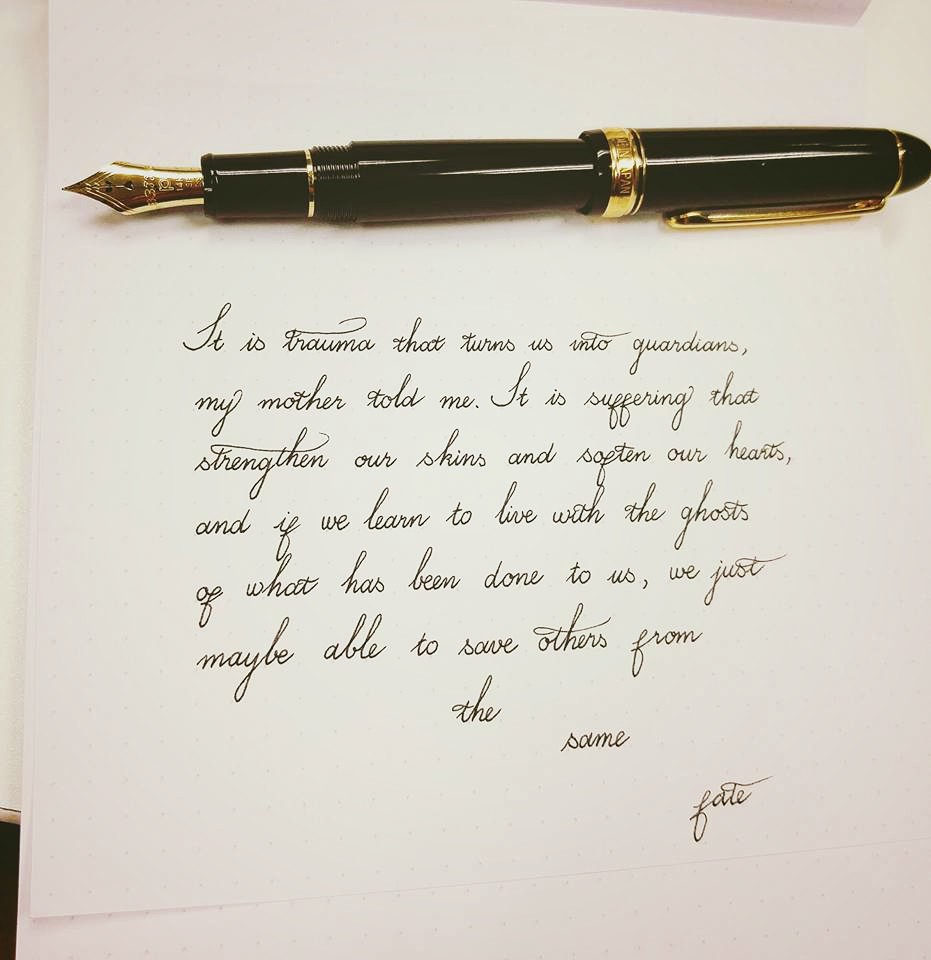 It is trauma that turns us into guardians,
my mother told me. It is suffering that
strengthen our skins and soften our hearts,
and if we learn to live with the ghosts
of what has been done to us, we just
maybe able to save others from
the
same
fate